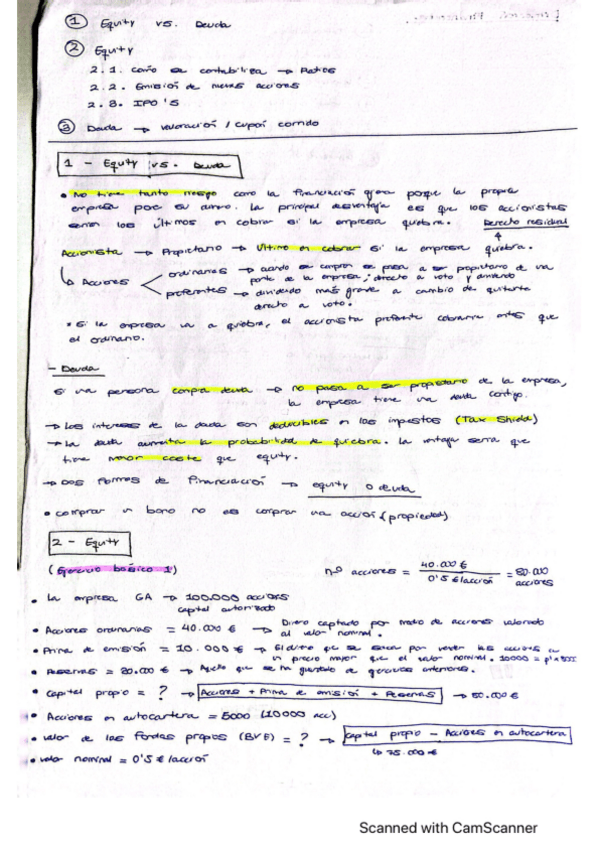 ① Equity vs. Deuda
② Equity
2.1. como se contabiliza → Ratios
2.2. Emisión de nuevas acciones
2.3. IPO'S
③ Deuda → valoración / cupón corrido
1 - Equity vs. Deuda
• No tiene tanto riesgo como la financiación ajena porque la propia
empresa pone su dinero. La principal desventaja es que los accionistas
serán los últimos en cobrar si la empresa quiebra. Derecho residual
Accionista → Propietario → Último en cobrar si la empresa quiebra.
↳ Acciones
ordinarias → cuando se compran se pasa a ser propietario de una
parte de la empresa; derecho a voto y dividendo
preferentes → dividendo más grande a cambio de quitarte
derecho a voto.
• si la empresa va a quiebra, el accionista preferente cobrará antes que
el ordinario.
- Deuda
si una persona compra deuda → no pasa a ser propietario de la empresa,
la empresa tiene una deuda contigo.
→ Los intereses de la deuda son deducibles en los impuestos (Tax Shield)
→ La deuda aumenta la probabilidad de quiebra. La ventaja será que
tiene menor coste que equity.
→ Dos formas de financiación → equity o deuda
• comprar un bono no es comprar una acción (propiedad)
2 - Equity
(Ejercicio básico 1) nº acciones = 40.000 € / 0'5 €/acción = 80.000 acciones
• La empresa GA → 100.000 acciones
capital autorizado
• Acciones ordinarias = 40.000 € → Dinero captado por medio de acciones valorado
al valor nominal.
• Prima de emisión = 10.000 € → El dinero que se saca por vender las acciones a
un precio mayor que el valor nominal. 10000 =
• Reservas = 20.000 € → Aquello que se ha guardado de ejercicios anteriores.
• Capital propio = ? → Acciones + Prima de emisión + Reservas → 80.000 €
• Acciones en autocartera = 5000 (10000 acc)
• Valor de los fondos propios (BVE) = ? → Capital propio - Acciones en autocartera
↳ 75.000 €
• Valor nominal = 0'5 €/acción
Scanned with CamScanner